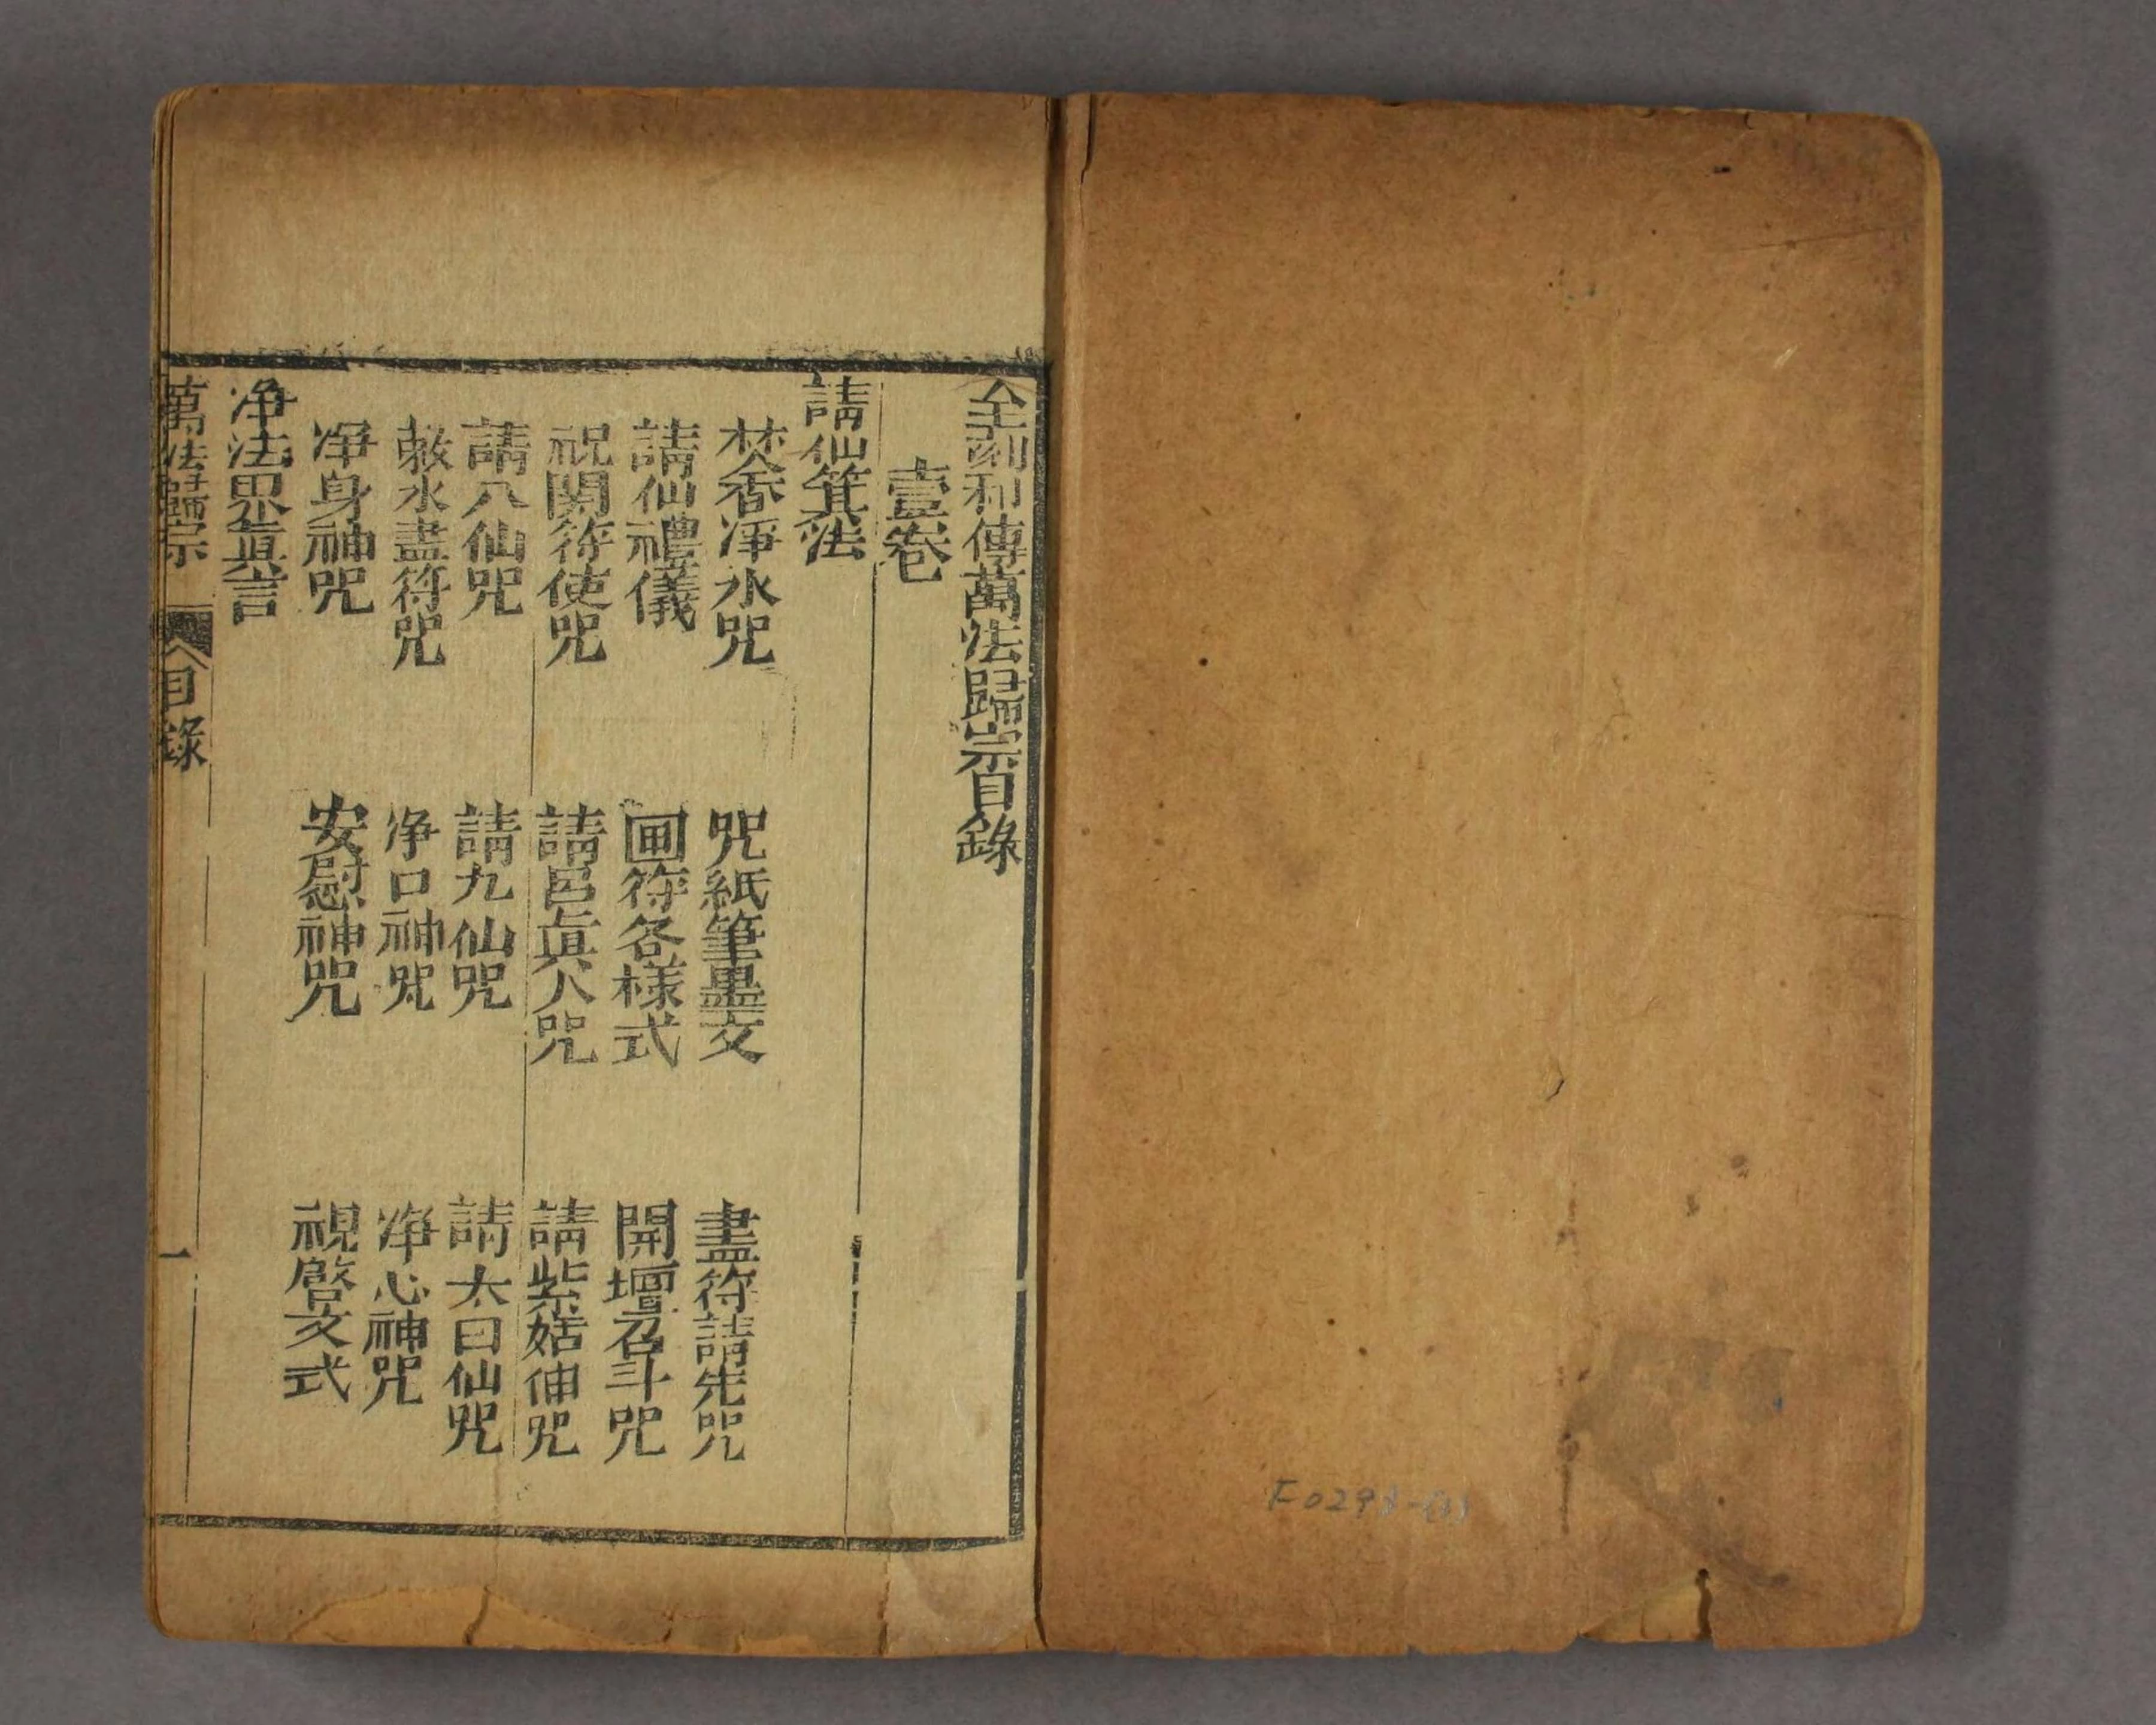 全刻秘傳萬法歸宗目錄
壹卷
請仙箕法
焚香淨水咒
咒紙筆墨文
畫符請先咒
請仙禮儀
画符各樣式
開壇召斗咒
祝関符使咒
請呂真人咒
請紫姑伸咒
請八仙咒
請九仙咒
請太白仙咒
敕水畫符咒
净口神咒
净心神咒
净身神咒
安慰神咒
視啓文式
净法界真言
萬法歸宗
目錄
一